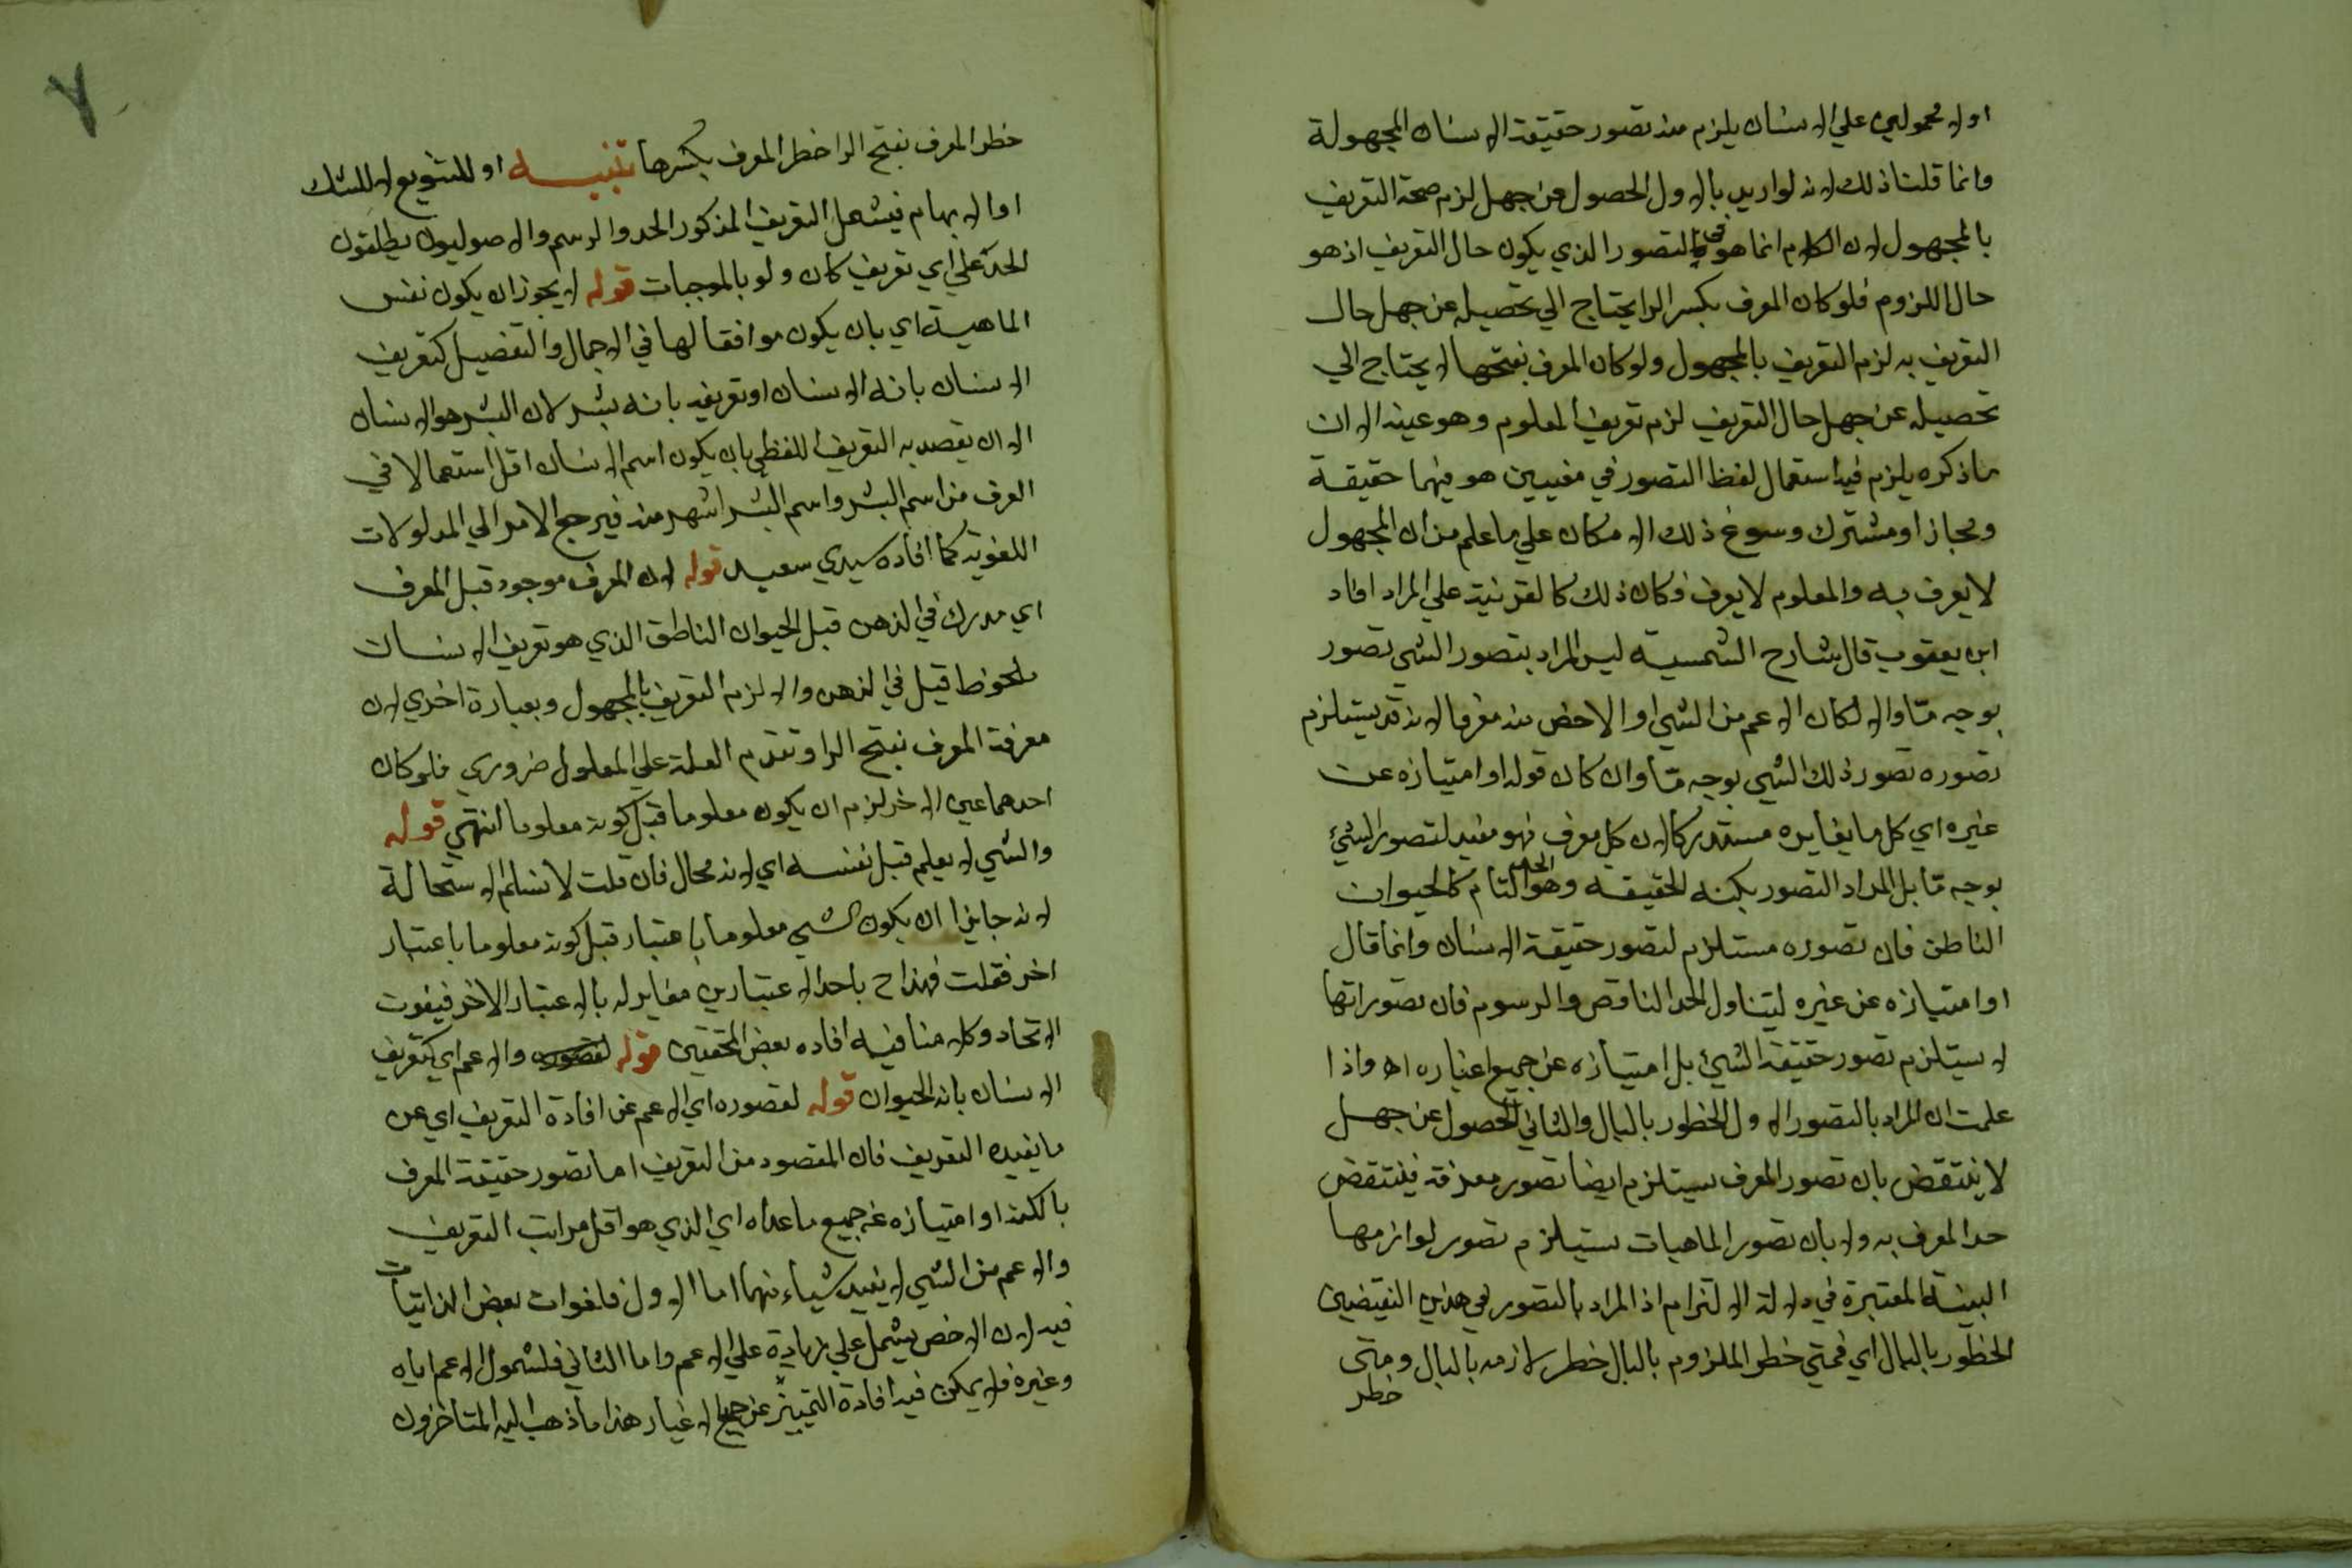 اولا محمولين علي الانسان يلزم منه تصور حقيقة الانسان المجهولة
وانما قلنا ذلك لانه لو اريد بالاول الحصول عن جهل لزم صحة التعريف
بالمجهول لان الكلام انما هو في التصور الذي يكون حال التعريف اذ هو
حال اللزوم فلو كان المعرف بكسر الرا يحتاج الي تحصيله عن جهل حال
التعريف به لزم التعريف بالمجهول ولو كان المعرف بفتحها لا يحتاج الي
تحصيله عن جهل حال التعريف لزم تعريف المعلوم وهو عينه الا ان
ما ذكره يلزم فيه استعمال لفظ التصور في معنيين هو فيهما حقيقة
ومجاز او مشترك وسوغ ذلك الامكان علي ما علم من ان المجهول
لا يعرف به والمعلوم لا يعرف فكان ذلك كالقرينة علي المراد افاد
ابن يعقوب قال شارح الشمسية ليس المراد بتصور الشي تصور
بوجه مّا والا لكان الاعم من الشي او الاخص منه معرفا لانه قد يستلزم
تصوره تصور ذلك الشي بوجه مّا وان كان قوله او امتيازه عن
غيره اي كل ما يغايره مستدركا لان كل معرف فهو مفيد لتصور الشئ
بوجه مّا بل المراد التصور بكنه الحقيقة وهو الحد التام كالحيوان
الناطق فان تصوره مستلزم لتصور حقيقة الانسان وانما قال
او امتيازه عن غيره ليتناول الحد الناقص والرسوم فان تصوراتها
لا يستلزم تصور حقيقة الشئ بل امتيازه عن جميع اغياره اه واذا
علمت ان المراد بالتصور الاول الخطور بالبال والثاني الحصول عن جهل
لا ينتقض بان تصور المعرف يستلزم ايضا تصور معرفه فينتقض
حد المعرف به ولا بان تصور الماهيات يستلزم تصور لوازمها
البينة المعتبرة في دلالة الالتزام اذ المراد بالتصور في هذين النقيضين
الخطور بالبال اي فمتي خطر الملزوم بالبال خطر لازمه بالبال ومتى
خطر
٧
خطر المعرف بفتح الرا خطر المعرف بكسرها تنبيه او للتنويع لا للشك
او الابهام فيشمل التعريف المذكور الحد والرسم والاصوليون يطلقون
الحد علي اي تعريف كان ولو بالموجبات قوله لا يجوز ان يكون نفس
الماهية اي بان يكون موافقا لها في الاجمال والتفصيل كتعريف
الانسان بانه الانسان او تعريفه بانه بشر لان البشر هو الانسان
الا ان يقصد به التعريف اللفظي بان يكون اسم الانسان اقل استعمالا في
العرف من اسم البشر واسم البشر اشهر منه فيرجح الامر الي المدلولات
اللغوية كما افاده سيدي سعيد قوله لان المعرف موجود قبل المعرف
اي مدرك في الذهن قبل الحيوان الناطق الذي هو تعريف الانسان
ملحوظ قبل في الذهن والا لزم التعريف بالمجهول وبعبارة اخري لان
معرفة المعرف بفتح الرا وتقدم العلة علي المعلول ضروري فلو كان
احدهما عين الاخر لزم ان يكون معلوما قبل كونه معلوما انتهي قوله
والشي لا يعلم قبل نفسه اي لانه محال فان قلت لا نسلم الاستحالة
لانه جايز ان يكون الشي معلوما باعتبار قبل كونه معلوما باعتبار
اخر فقلت فهذا ح باحد الاعتبارين مغاير له بالاعتبار الاخر فيفوت
الاتحاد وكلامنا فيه افاده بعض المحققين قوله والاعم اي كتعريف
الانسان بانه الحيوان قوله لقصوره اي الاعم عن افادة التعريف اي عن
ما يفيده التعريف فان المقصود من التعريف اما تصور حقيقة المعرف
بالكنه او امتيازه عن جميع ما عداه اي الذي هو اقل مراتب التعريف
والاعم من الشي لا يفيد شياء منهما اما الاول فلفوات بعض الذاتيات
فيه لان الاخص يشمل علي زيادة علي الاعم واما الثاني فلشمول الاعم اياه
وغيره فلا يمكن فيه افادة التمييز عن جميع الاغيار هذا ما ذهب اليه المتاخرون